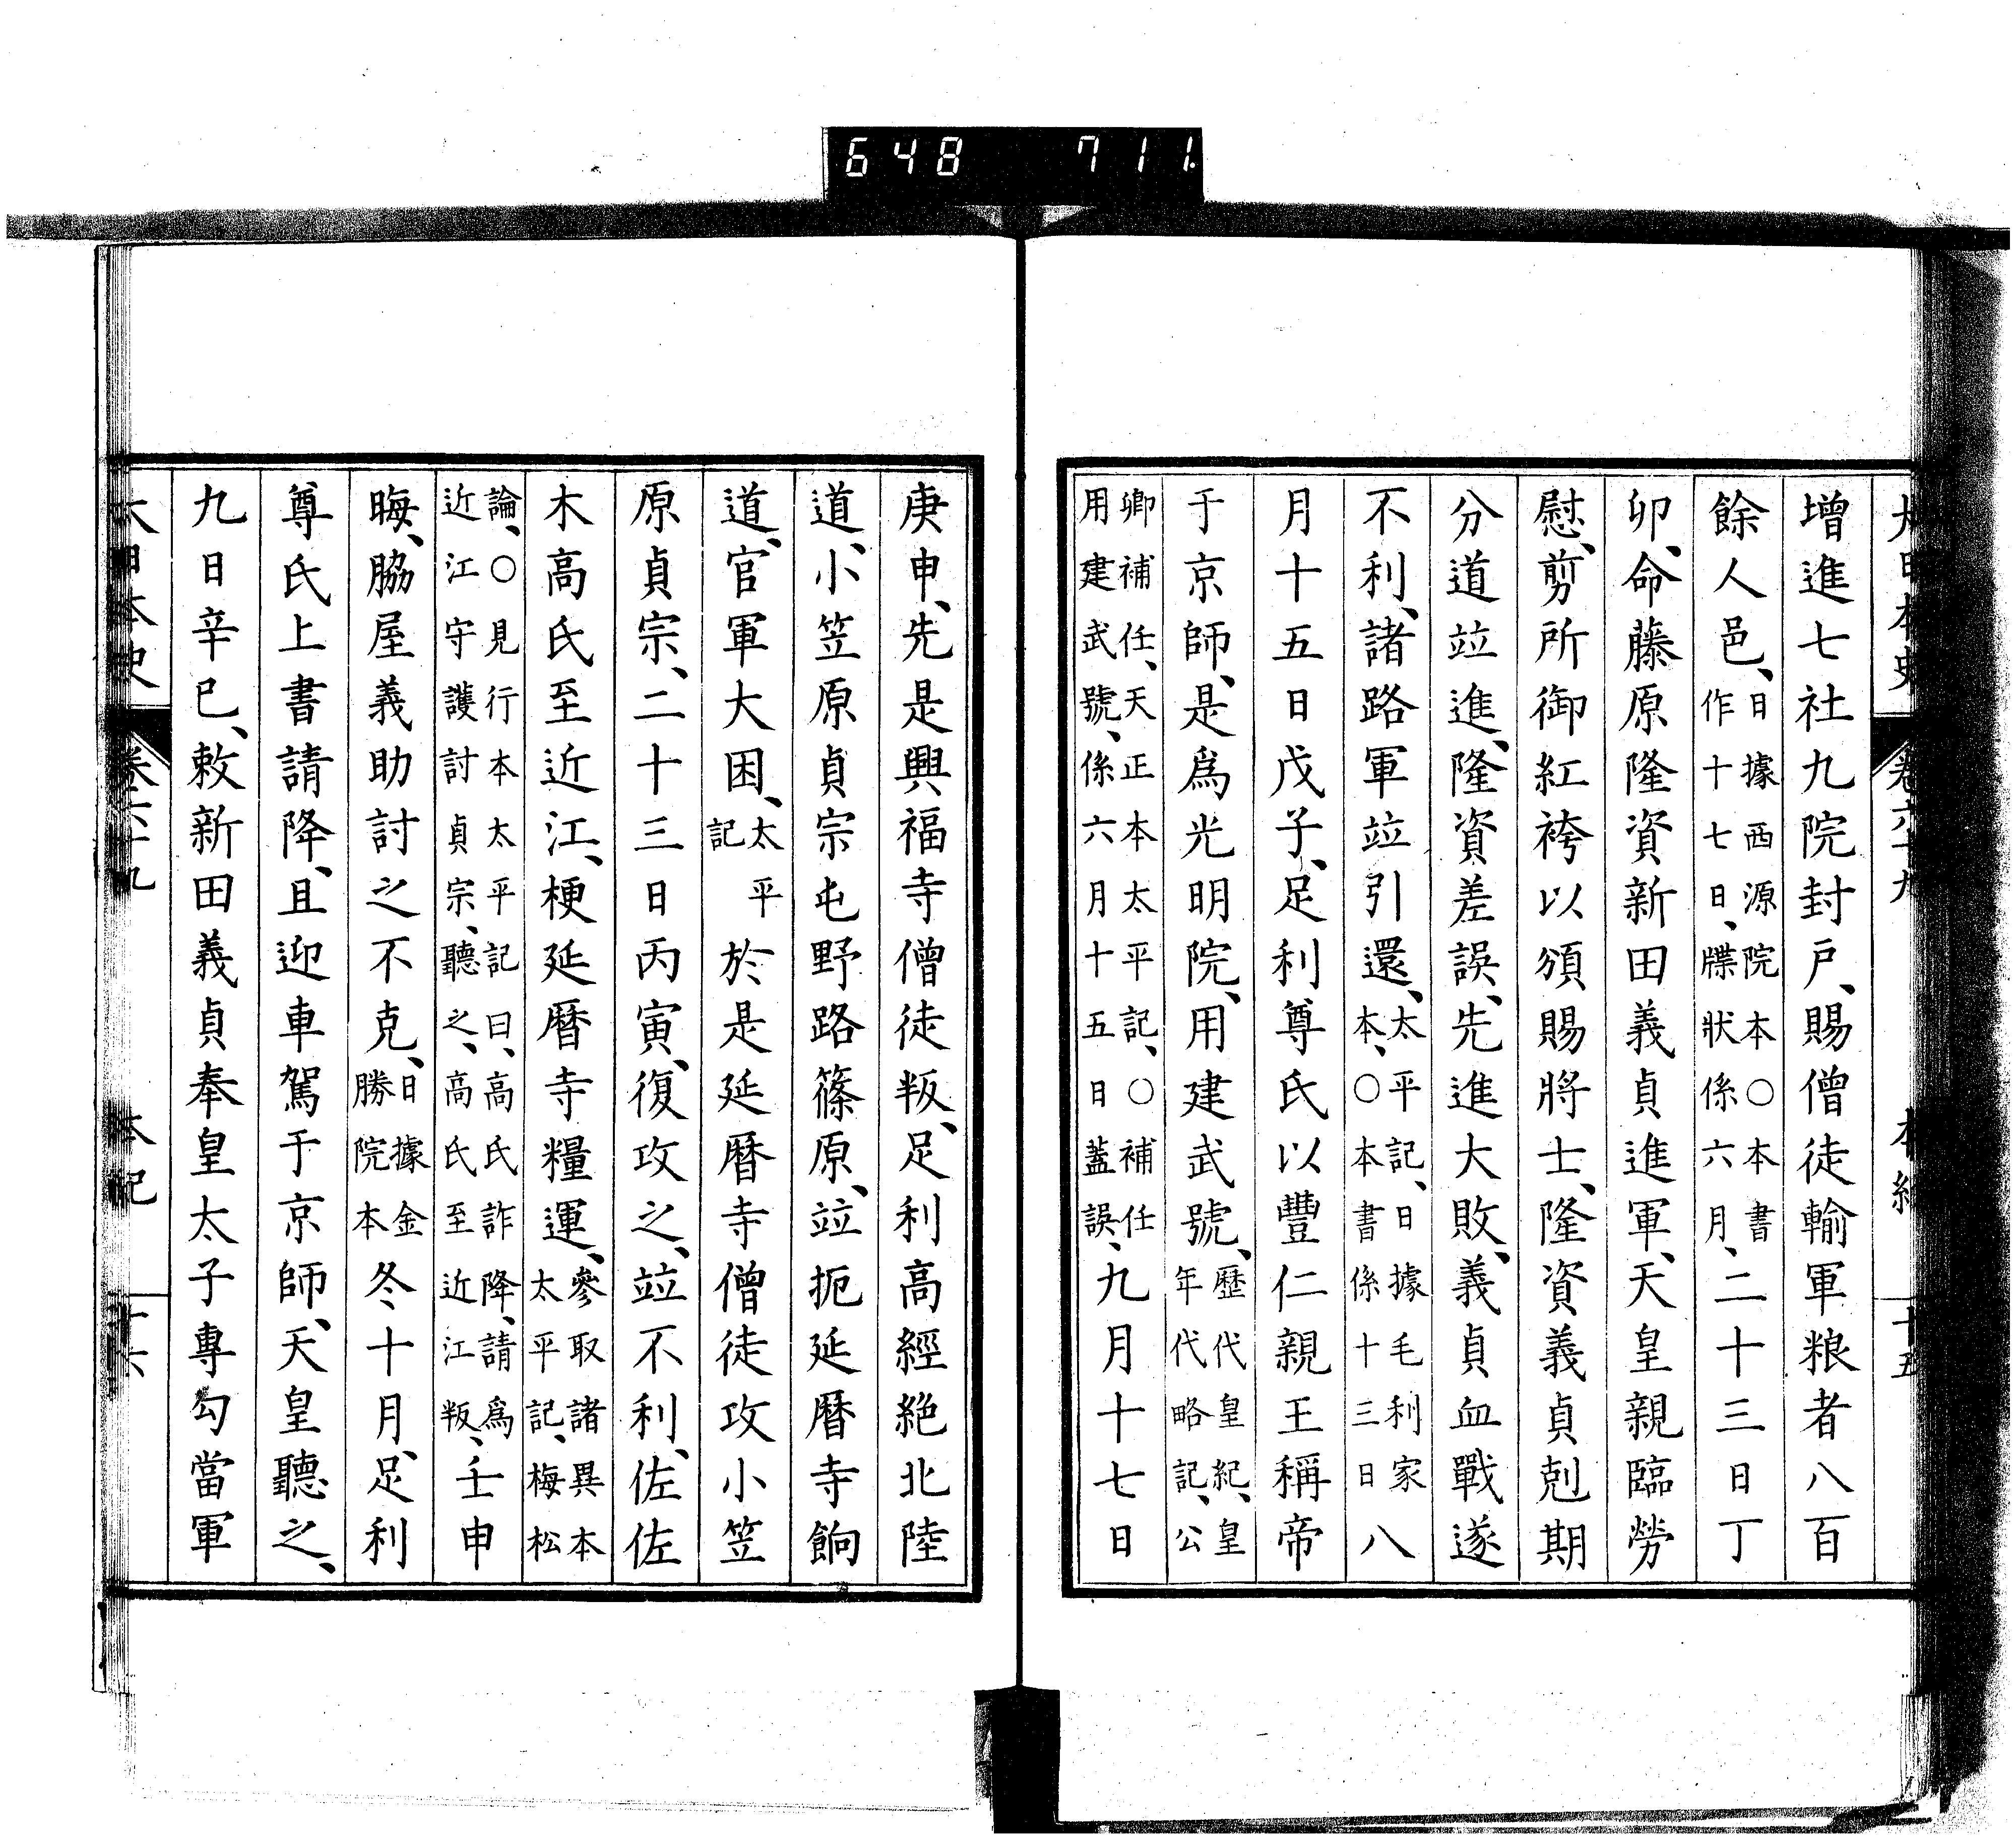 648 711
大日本史 卷六十九 本紀 十五
增進七社九院封戶、賜僧徒輸軍粮者八百
餘人邑、日據西源院本○本書作十七日、牒狀係六月、二十三日丁
卯、命藤原隆資新田義貞進軍、天皇親臨勞
慰、剪所御紅袴以頒賜將士、隆資義貞剋期
分道竝進、隆資差誤、先進大敗、義貞血戰遂
不利、諸路軍竝引還、太平記、日據毛利家本、○本書係十三日八
月十五日戊子、足利尊氏以豐仁親王稱帝
于京師、是爲光明院、用建武號、歷代皇紀、皇年代略記、公
卿補任、天正本太平記、○補任用建武號、係六月十五日蓋誤、九月十七日
庚申、先是興福寺僧徒叛、足利高經絶北陸
道、小笠原貞宗屯野路篠原、竝扼延曆寺餉
道、官軍大困、太平記於是延曆寺僧徒攻小笠
原貞宗、二十三日丙寅、復攻之、竝不利、佐佐
木高氏至近江、梗延曆寺糧運、參取諸異本太平記、梅松
論、○見行本太平記曰、高氏詐降、請爲近江守護討貞宗、聽之、高氏至近江叛、壬申
晦、脇屋義助討之不克、日據金勝院本冬十月、足利
尊氏上書請降、且迎車駕于京師、天皇聽之、
九日辛巳、敕新田義貞奉皇太子專勾當軍
大日本史 卷六十九 本紀 十六